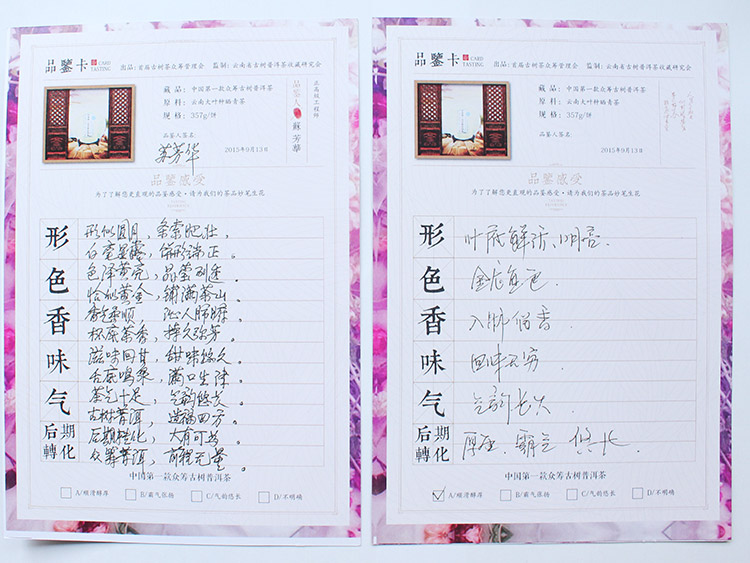 品鑒卡 CARD TASTING
出品:首届古树茶众筹管理会 监制:云南省古树普洱茶收藏研究会
藏品:中国第一款众筹古树普洱茶
原料:云南大叶种晒青茶
规格:357g/饼
品鉴人签名:
苏芳华
2015年9月13日
品鉴人 蘇芳華
正高级工程师
品鑒感受
为了了解您更直观的品鉴感受,请为我们的茶品妙笔生花
形
形似圆月,条索肥壮,
白毫显露,饼形端正。
色
色泽黄亮,品莹剔透。
恰似黄金,铺满茶山。
香
香气柔顺,沁人肺腑。
杯底茶香,持久弥芳。
味
滋味回甘,甜味绵久。
舌底鸣泉,满口生津。
气
茶气十足,气韵悠长。
古树普洱,造福四方。
后期轉化
后期转化,大有可为。
众筹普洱,前程无量。
中国第一款众筹古树普洱茶
A/顺滑鲜厚 B/霸气张扬 C/气韵悠长 D/不明确
品鑒卡 CARD TASTING
出品:首届古树茶众筹管理会 监制:云南省古树普洱茶收藏研究会
藏品:中国第一款众筹古树普洱茶
原料:云南大叶种晒青茶
规格:357g/饼
品鉴人签名:
2015年9月13日
品鑒感受
为了了解您更直观的品鉴感受,请为我们的茶品妙笔生花
形 叶底鲜活、明亮.
色 金底
香 入 留香.
味 回味无穷
气 气韵长久.
后期轉化 厚重. 霸气 悠长.
中国第一款众筹古树普洱茶
A/顺滑鲜厚 B/霸气张扬 C/气韵悠长 D/不明确